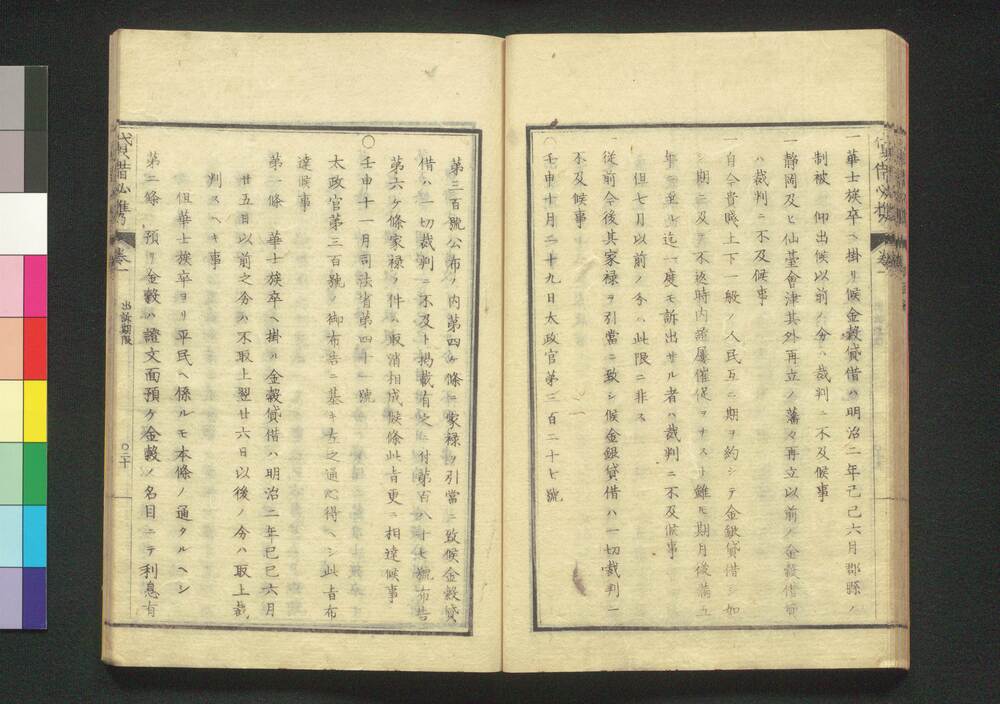 一華士族卒ヘ掛リ候金穀貸借ハ明治二年己巳六月郡縣ノ
制被　仰出候以前ノ分ハ裁判ニ不及候事
一静岡及ヒ仙䑓會津其外再立ノ藩々再立以前ノ金穀借貸
ハ裁判ニ不及候事
一自今貴賤上下一般ノ人民互ニ期ヲ約シテ金銀貸借シ如
シ期ニ及テ不返時内證屢催促ヲナスト雖モ期月後満五
年ニ至ル迄一度モ訴出サル者ハ裁判ニ不及候事
但七月以前ノ分ハ此限ニ非ス
從前今後其家禄ヲ引當ニ致シ候金銀貸借ハ一切裁判ニ
不及候事
〇壬申十月二十九日太政官第三百二十七號
第三百號公布ノ内第四ケ條ニ家禄ヲ引當ニ致候金穀貸
借ハ一切裁判ニ不及ト掲載有之ニ付第百八十七號布告
第六ケ條家禄ノ件ハ取消相成候條此旨更ニ相達候事
〇壬申十一月司法省第四十一號
太政官第三百號ノ御布告ニ基キ左之通心得ヘシ此旨布
達候事
第一條　華士族卒ヘ掛ル金穀貸借ハ明治二年己巳六月
廿五日以前之分ハ不取上翌廿六日以後ノ分ハ取上裁
判スヘキ事
但華士族卒ヨリ平民ヘ係ルモ本條ノ通タルヘシ
第二條　預リ金穀ハ證文面預ケ金穀ノ名目ニテ利息有
貸借必携
巻一
出訴期限
〇二十